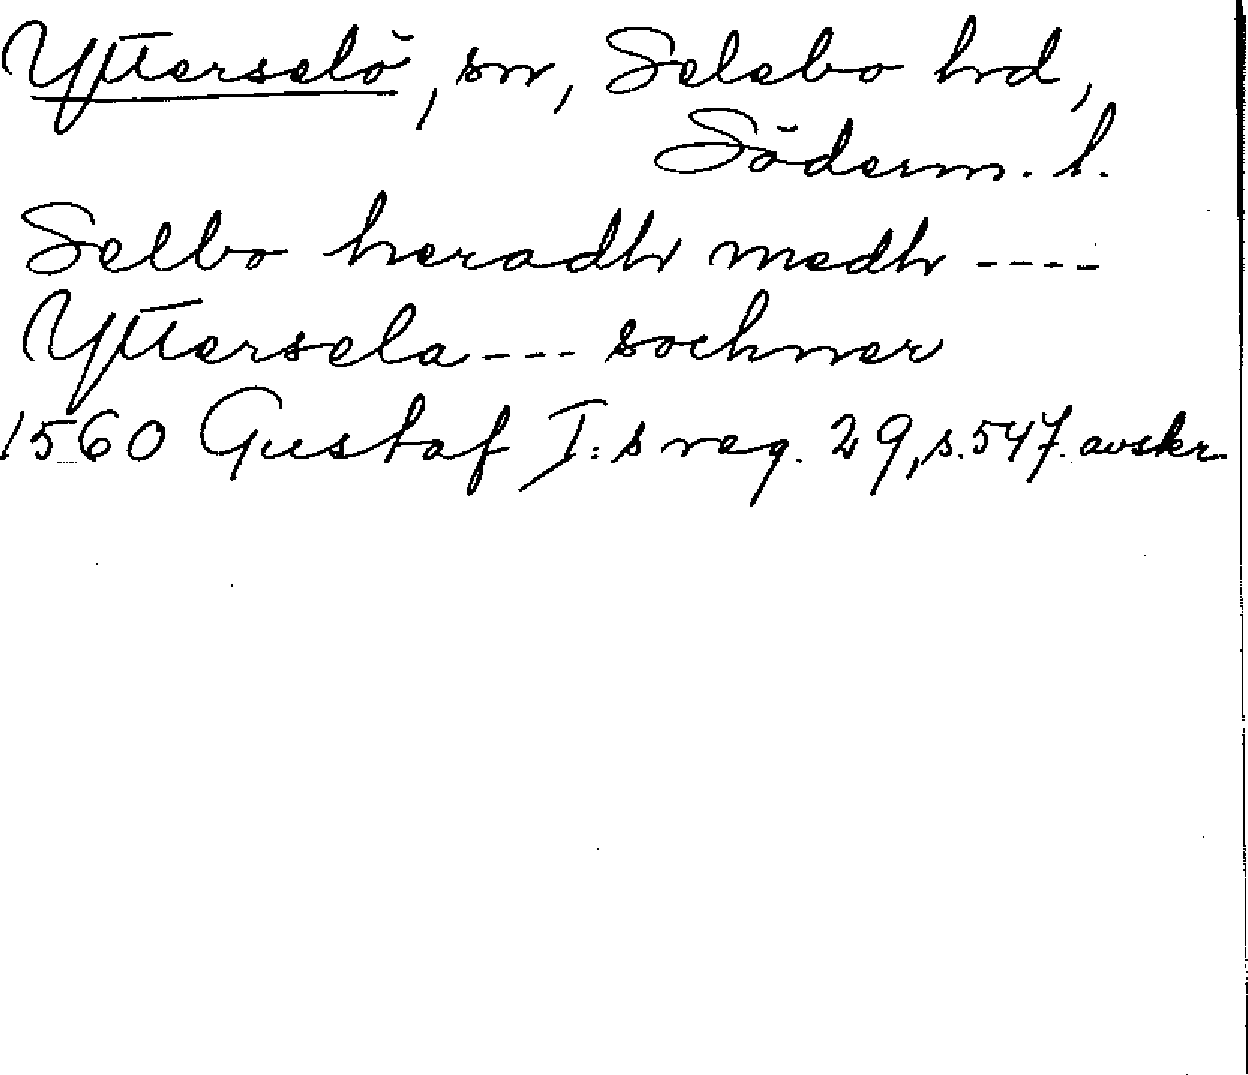 Ytterselö, sn, Selebo hrd,
Söderm. l.
Selbo heradh medh ----
Yttersela --- sochner
1560 Gustaf I:s reg. 29, s. 547. avskr.